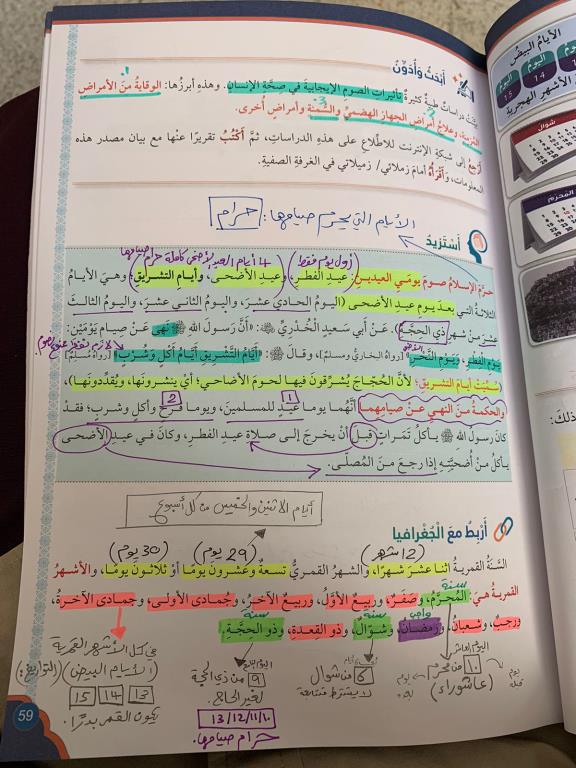 أَبْحَثُ وَأُدَوِّنُ
دراسات طبية كثيرة تأثيرات الصوم الإيجابية في صحة الإنسان. وهذه أبرزها: الوقاية من الأمراض
المزمنة، وعلاج أمراض الجهاز الهضمي والسمنة وأمراض أخرى.
أَرْجِعُ إلى شبكة الإنترنت للاطلاع على هذه الدراسات، ثم أَكْتُبُ تقريرًا عنها مع بيان مصدر هذه
المعلومات، وَأَقْرَأُهُ أمام زملائي/ زميلاتي في الغرفة الصفية.
الأيام التي يحرم صيامها: حرام
أَسْتَزِيدُ
أول يوم فقط
٤ أيام العيد الأضحى كاملة حرام صيامها
حرّم الإسلام صوم يومي العيدين: عيد الفطر، وعيد الأضحى، وأيام التشريق وهي الأيام
الثلاثة التي بعد يوم عيد الأضحى (اليوم الحادي عشر، واليوم الثاني عشر، واليوم الثالث
عشر من شهر ذي الحجة). عن أبي سعيد الخُدْرِيِّ ﷺ: «أنَّ رسول الله ﷺ نهى عن صيام يومين:
يوم الفطر، ويوم النحر» [رواه البخاري ومسلم]، وقال ﷺ: «أيام التشريق أيام أكل وشرب» [رواه مسلم]
(سُمِّيت أيام التشريق؛ لأنّ الحجاج يُشرِّقون فيها لحوم الأضاحي؛ أي ينشرونها، ويُقدِّدونها)،
والحكمة من النهي عن صيامهما أنّهما يوما عيد للمسلمين، ويوما فرح وأكل وشرب؛ فقد
1
2
كان رسول الله ﷺ يأكل تمرات قبل أن يخرج إلى صلاة عيد الفطر، وكان في عيد الأضحى
يأكل من أضحيته إذا رجع من المصلّى.
أيام الاثنين والخميس من كل أسبوع
أَرْبِطُ مَعَ الْجُغْرافيا
(12 شهر)
(29 يوم)
(30 يوم)
السَّنة القمرية اثنا عشر شهرًا، والشهر القمريُّ تسعة وعشرون يومًا أو ثلاثون يومًا، والأشهر
القمرية هي: المُحرَّم، وصَفَر، وربيع الأول، وربيع الآخر، وجُمادى الأولى، وجمادى الآخرة،
سنة
واجب
سنة
سنة
ورجب، وشعبان، ورمضان، وشوال، وذو القعدة، وذو الحجّة.
اليوم العاشر
10 من محرم
(عاشوراء)
يوم قبله
يوم بعده
6 من شوال
لا يشترط متتابعة
9 من ذي الحجة
لغير الحاج.
10/11/12/13
حرام صيامها.
في كل الأشهر القمرية
(الأيام البيض) (التواريخ:)
13 14 15
يكون القمر بدرًا.
59
الأيام البيض
اليوم
اليوم
14
15
الأشهر الهجرية
شوال
المحرم